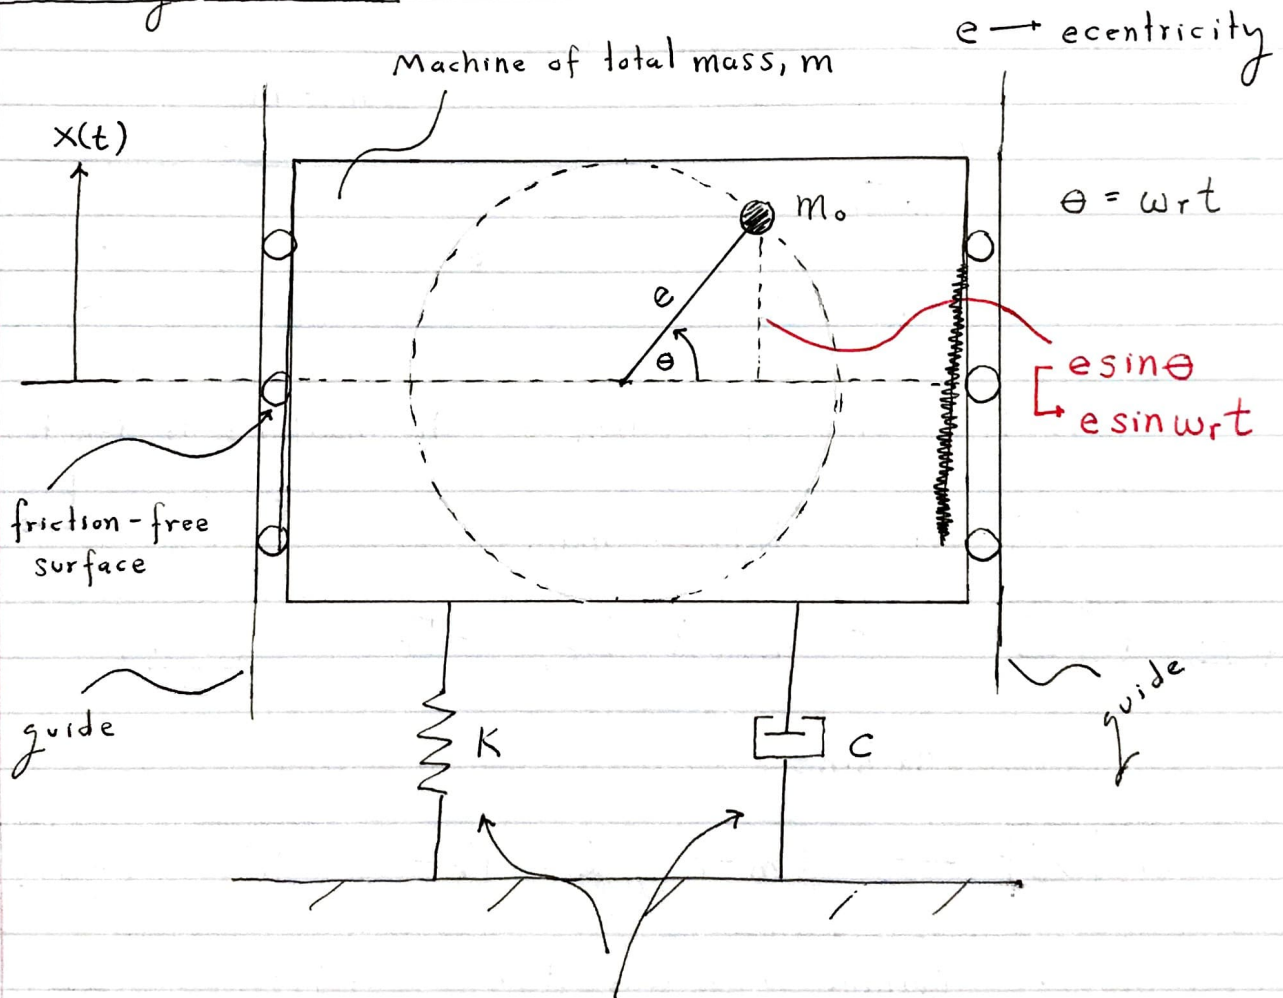 e → ecentricity
Machine of total mass, m
x(t)
m₀
θ = ωᵣt
e
θ
e sinθ
e sin ωᵣt
friction-free
surface
guide
guide
K
C